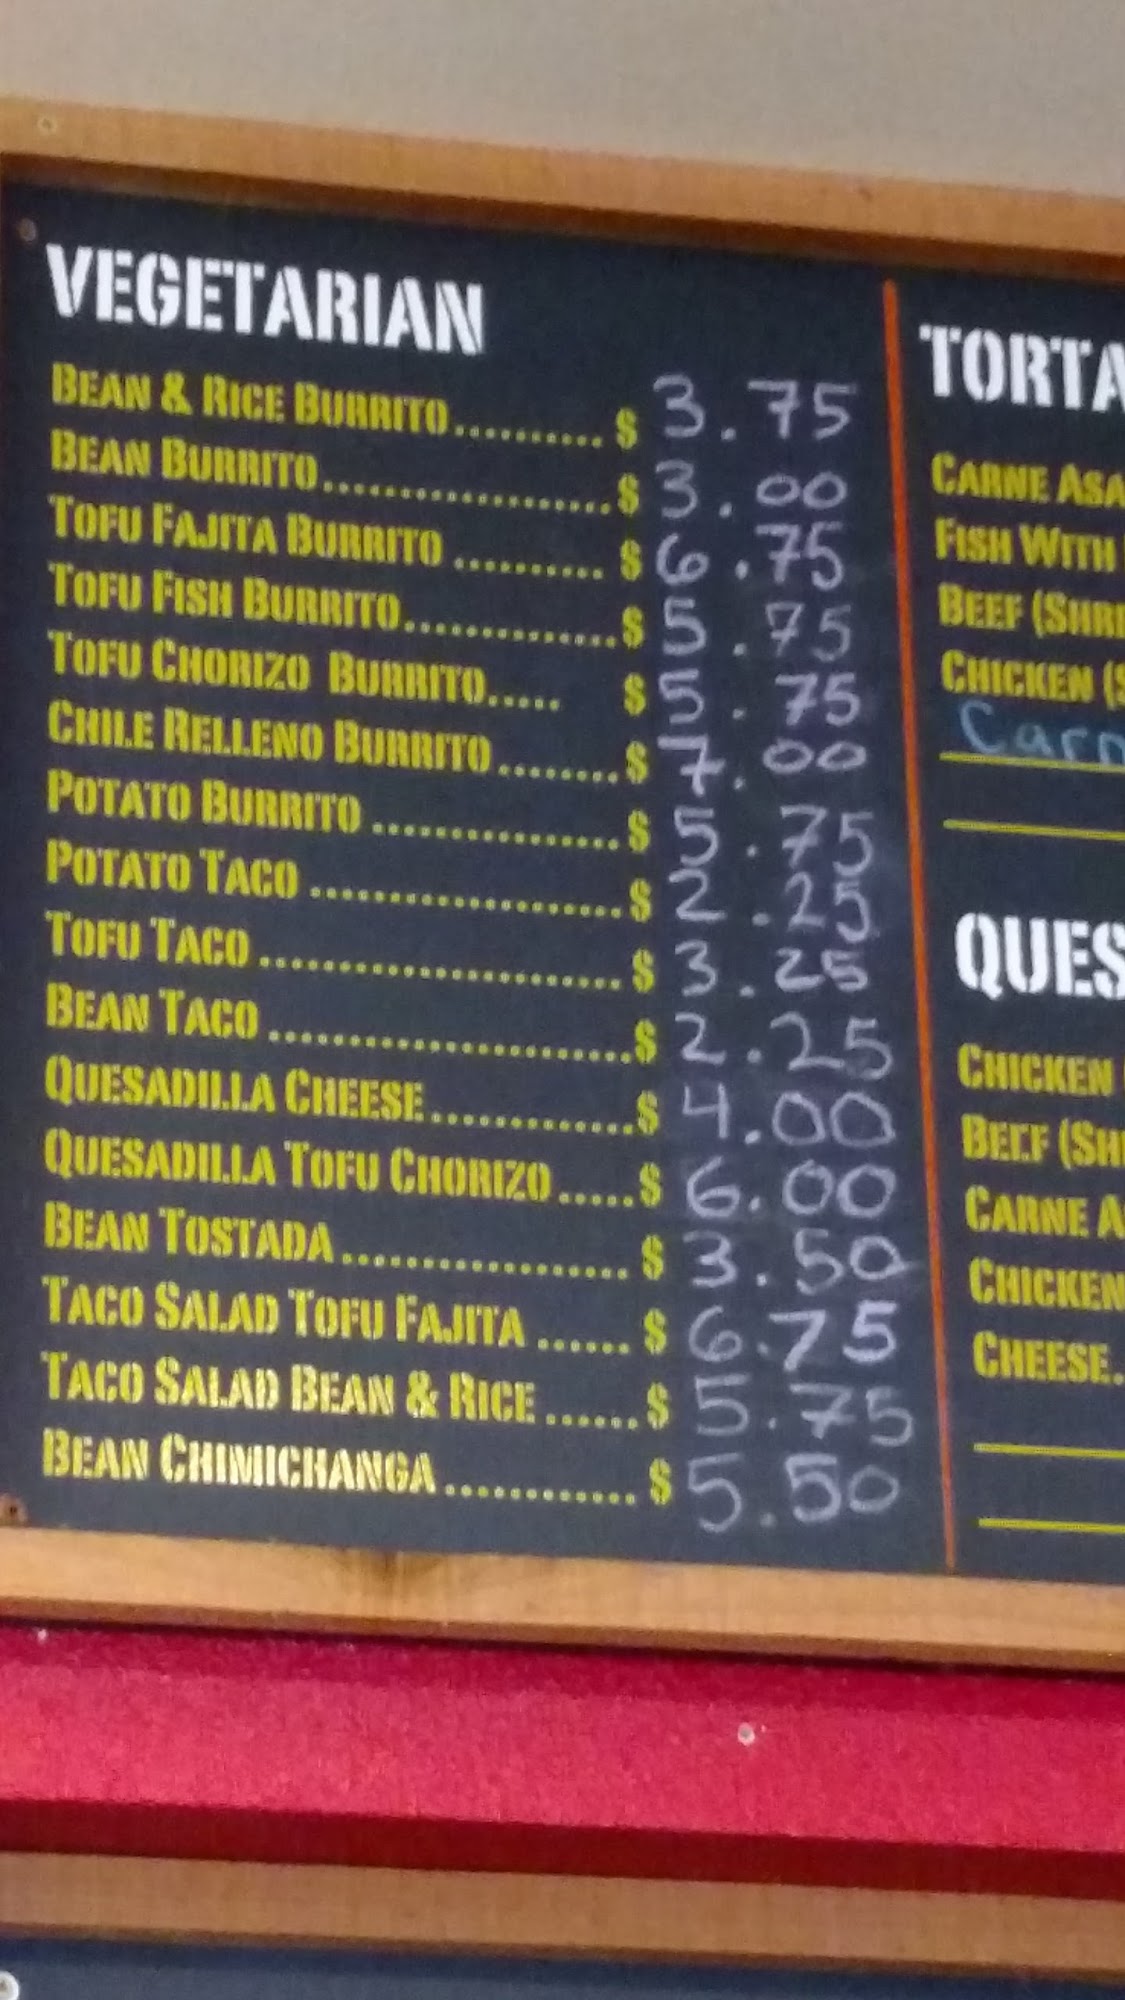 VEGETARIAN
BEAN & RICE BURRITO.......... $ 3.75
BEAN BURRITO....................$ 3.00
TOFU FAJITA BURRITO .......... $ 6.75
TOFU FISH BURRITO...............$ 5.75
TOFU CHORIZO BURRITO..... $ 5.75
CHILE RELLENO BURRITO........$ 7.00
POTATO BURRITO .................$ 5.75
POTATO TACO .....................$ 2.25
TOFU TACO ........................ $ 3.25
BEAN TACO ........................$ 2.25
QUESADILLA CHEESE.............$ 4.00
QUESADILLA TOFU CHORIZO .....$ 6.00
BEAN TOSTADA................... $ 3.50
TACO SALAD TOFU FAJITA ...... $ 6.75
TACO SALAD BEAN & RICE ......$ 5.75
BEAN CHIMICHANGA ............. $ 5.50
TORTA
CARNE ASA
FISH WITH
BEEF (SHR
CHICKEN (S
Carn
QUES
CHICKEN
BEEF (SH
CARNE A
CHICKEN
CHEESE.